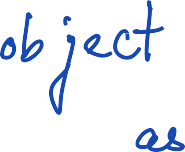 object
as